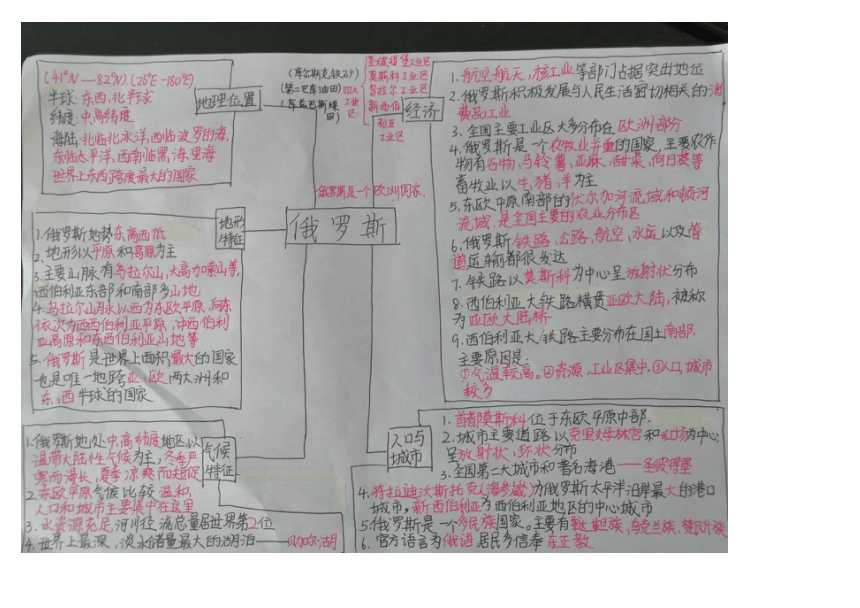 (41°N—82°N)(26°E-180°E)
半球:东西,北半球
纬度:中,高纬度
海陆:北临北冰洋,西临波罗的海,
东临太平洋,西南临黑,海,里海
世界上东西跨度最大的国家
地理位置
(库尔斯克铁矿)
(第二巴库油田)
四大
工业
区:
圣彼得堡工业区
莫斯科工业区
乌拉尔工业区
新西伯
利亚
工业区
经济
1.航空航天,核工业等部门占据突出地位
2.俄罗斯积极发展与人民生活密切相关的消
费品工业
3.全国主要工业区大多分布在欧洲部分
4.俄罗斯是一个农牧业并重的国家,主要农作
物有谷物,马铃薯,亚麻,甜菜,向日葵等
畜牧业以牛,猪,羊为主
5.东欧平原南部的伏尔加河流域和顿河
流域,是全国主要的农业分布区
6.俄罗斯铁路,公路,航空,水运以及管
道运输都很发达
7.铁路以莫斯科为中心呈放射状分布
8.西伯利亚大铁路横贯亚欧大陆,被称
为亚欧大陆桥
9.西伯利亚大铁路主要分布在国土南部.
主要原因是:
①气温较高。②资源,工业区集中,③人口,城市
较多
俄罗斯是一个欧洲国家.
俄罗斯
地形
特征
1.俄罗斯地势东高西低
2.地形以平原和高原为主
3.主要山脉有乌拉尔山,大高加索山等,
西伯利亚东部和南部多山地
4.乌拉尔山脉以西为东欧平原,向东
依次为西西伯利亚平原,中西伯利
亚高原和东西伯利亚山地等
5.俄罗斯是世界上面积最大的国家
也是唯一地跨亚,欧两大洲和
东,西半球的国家
气候
特征
1.俄罗斯地处中,高纬度地区,以
温带大陆性气候为主,冬季严
寒而漫长,夏季凉爽而短促
2.东欧平原气候比较温和,
人口和城市主要集中在这里
3.水资源充足,河川径流总量居世界第2位
4.世界上最深,淡水储量最大的湖泊——贝加尔湖
人口与
城市
1.首都莫斯科位于东欧平原中部.
2.城市主要道路以克里姆林宫和红场为中心
呈放射状,环状分布
3.全国第二大城市和著名海港——圣彼得堡
4.符拉迪沃斯托克(海参崴)为俄罗斯太平洋沿岸最大的港口
城市。新西伯利亚为西伯利亚地区的中心城市
5.俄罗斯是一个多民族国家。主要有鞑靼族,乌克兰族,楚瓦什族
6.官方语言为俄语,居民多信奉东正教